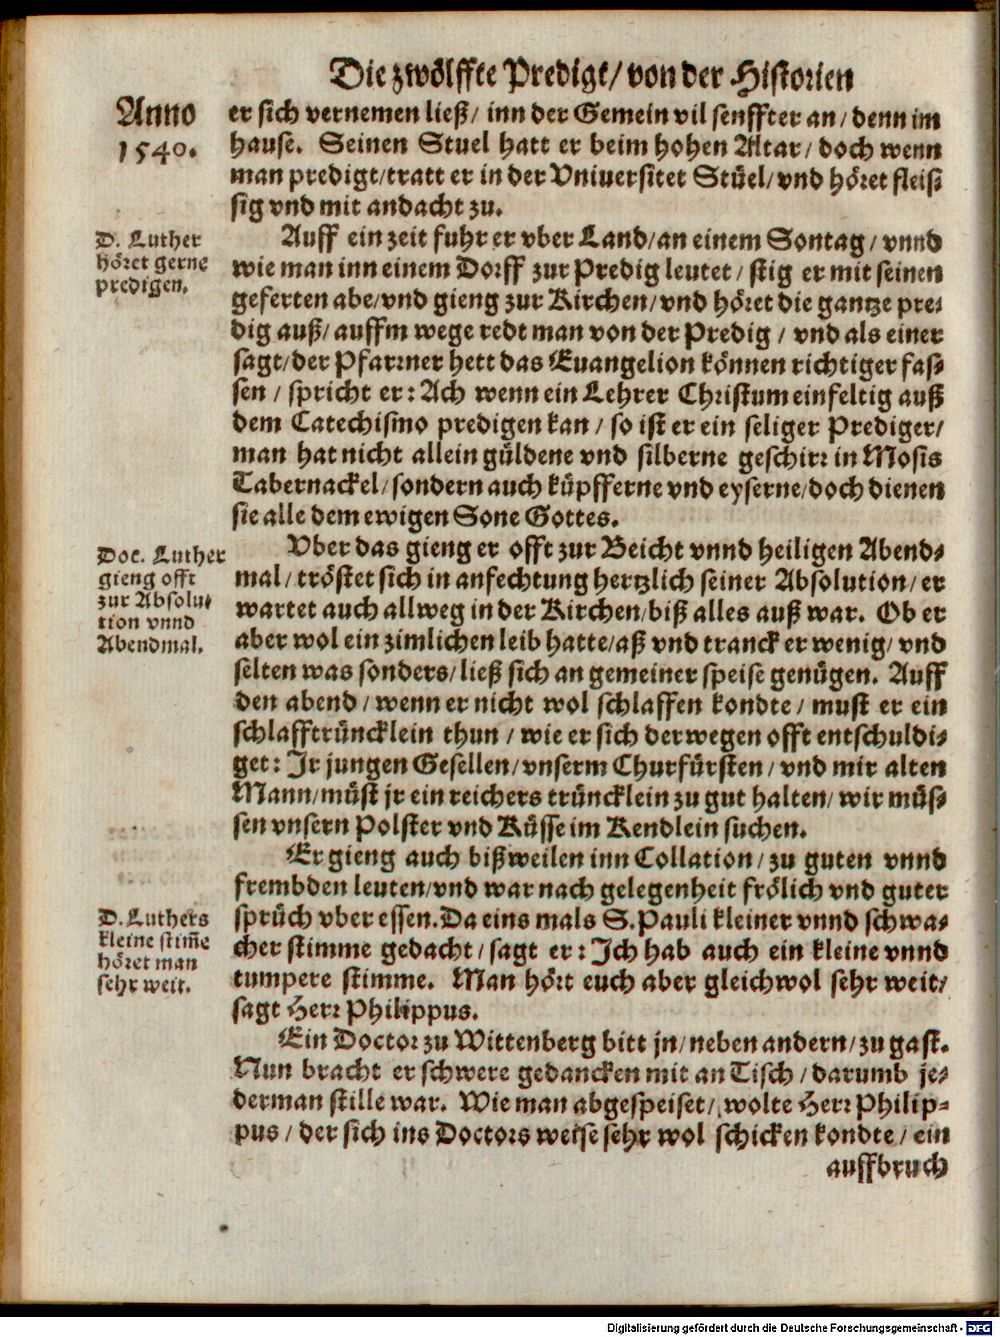 Die zwölffte Predigt/ von der Historien
Anno
1540.
er sich vernemen ließ/ inn der Gemein vil senffter an/ denn im
hause. Seinen Stuel hatt er beim hohen Altar/ doch wenn
man predigt/ tratt er in der Vniuersitet Stüel/ vnd höret fleis-
sig vnd mit andacht zu.
D. Luther
höret gerne
predigen.
Auff ein zeit fuhr er vber Land/ an einem Sontag/ vnnd
wie man inn einem Dorff zur Predig leutet/ stig er mit seinen
geferten abe/ vnd gieng zur Kirchen/ vnd höret die gantze pre-
dig auß/ auffm wege redt man von der Predig/ vnd als einer
sagt/ der Pfarrner hett das Euangelion können richtiger fas-
sen/ spricht er: Ach wenn ein Lehrer Christum einfeltig auß
dem Catechismo predigen kan/ so ist er ein seliger Prediger/
man hat nicht allein güldene vnd silberne geschirr in Mosis
Tabernackel/ sondern auch küpfferne vnd eyserne/ doch dienen
sie alle dem ewigen Sone Gottes.
Doc. Luther
gieng offt
zur Absolu-
tion vnnd
Abendmal.
Vber das gieng er offt zur Beicht vnnd heiligen Abend-
mal/ tröstet sich in anfechtung hertzlich seiner Absolution/ er
wartet auch allweg in der Kirchen/ biß alles auß war. Ob er
aber wol ein zimlichen leib hatte/ aß vnd tranck er wenig/ vnd
selten was sonders/ ließ sich an gemeiner speise genügen. Auff
den abend/ wenn er nicht wol schlaffen kondte/ must er ein
schlafftrüncklein thun/ wie er sich derwegen offt entschuldi-
get: Jr jungen Gesellen/ vnserm Churfürsten/ vnd mir alten
Mann/ müst jr ein reichers trüncklein zu gut halten/ wir müs-
sen vnsern Polster vnd Küsse im Kendlein suchen.
Er gieng auch bißweilen inn Collation/ zu guten vnnd
frembden leuten/ vnd war nach gelegenheit frölich vnd guter
D. Luthers
kleine stim̃e
höret man
sehr weit.
sprüch vber essen. Da eins mals S. Pauli kleiner vnnd schwa-
cher stimme gedacht/ sagt er: Jch hab auch ein kleine vnnd
tumpere stimme. Man hört euch aber gleichwol sehr weit/
sagt Herr Philippus.
Ein Doctor zu Wittenberg bitt jn/ neben andern/ zu gast.
Nun bracht er schwere gedancken mit an Tisch/ darumb je-
derman stille war. Wie man abgespeiset/ wolte Herr Philip-
pus/ der sich ins Doctors weise sehr wol schicken kondte/ ein
auffbruch
Digitalisierung gefördert durch die Deutsche Forschungsgemeinschaft - DFG